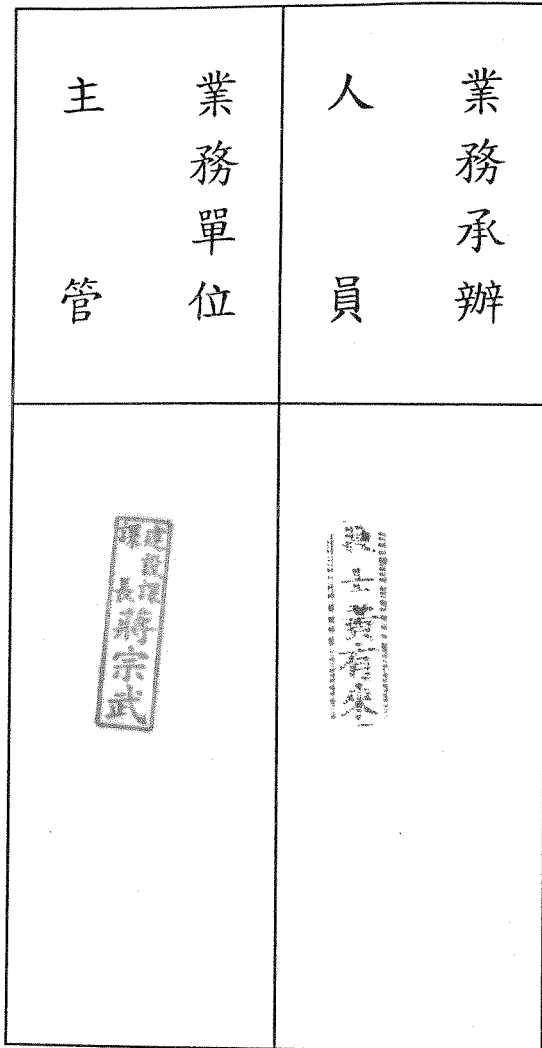 業務承辦
人員
業務單位
主管
建設課
課長
蔣宗武